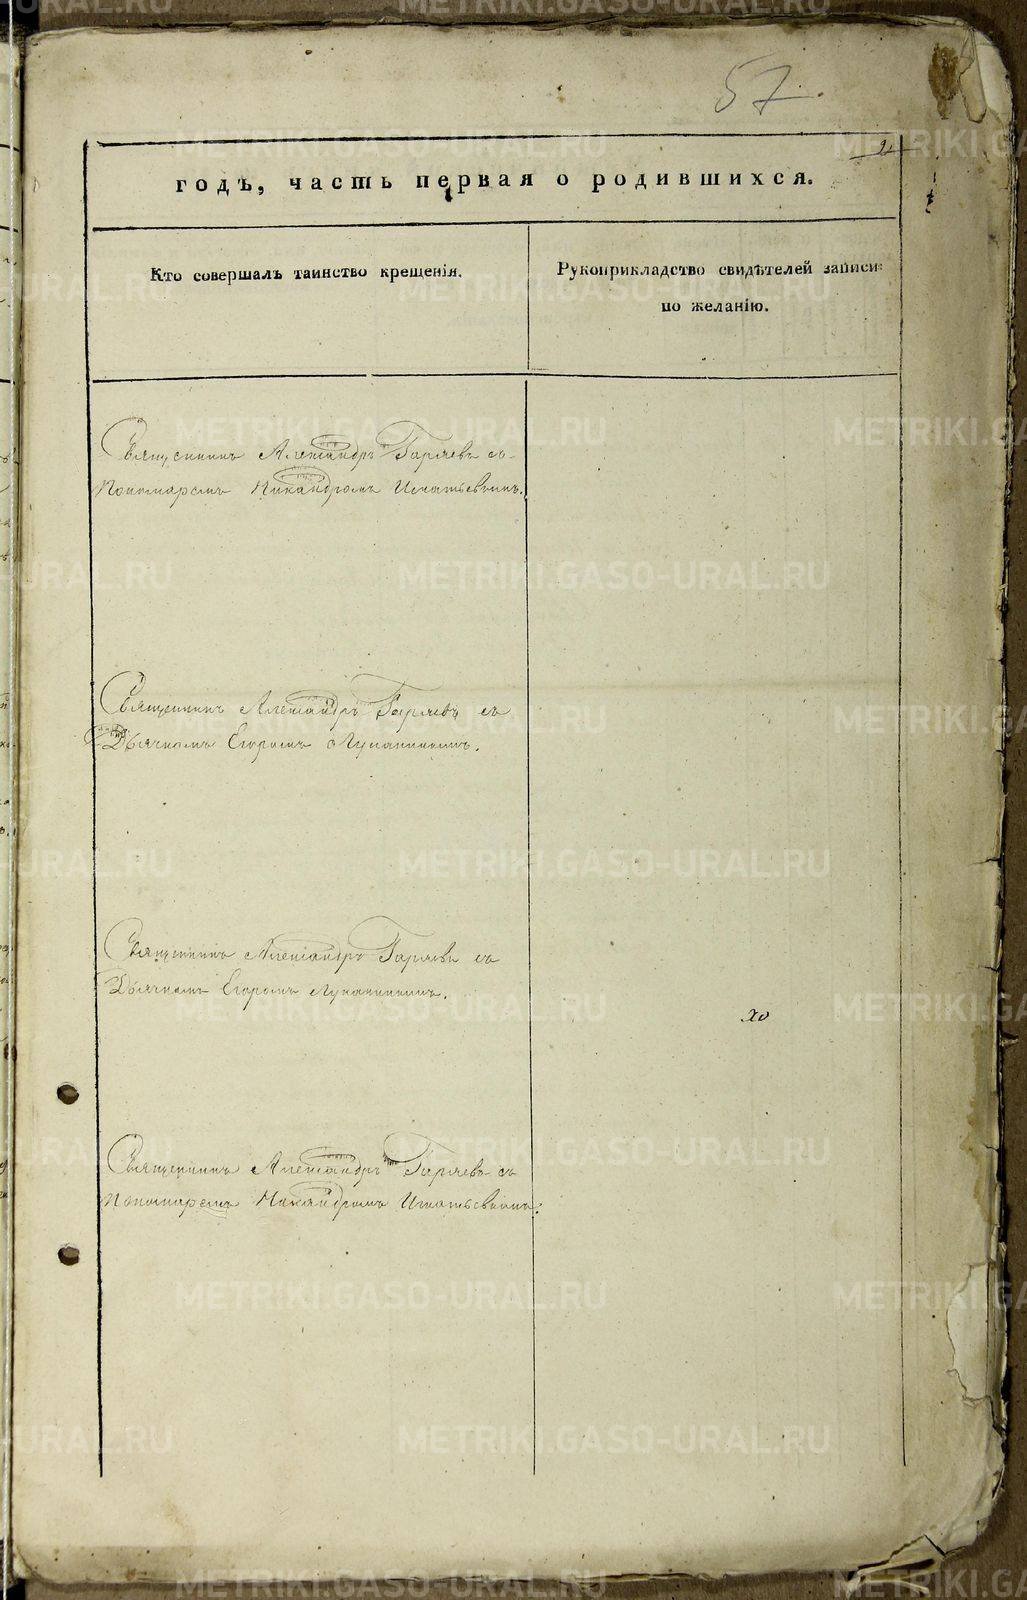 57.
годъ, часть первая о родившихся.
Кто совершалъ таинство крещенія.
Рукоприкладство свидѣтелей записи
по желанію.
Священникъ Александръ Гаряевъ съ
Пономаремъ Никандромъ Игнатьевымъ.
Священникъ Александръ Гаряевъ съ
Дьячкомъ Егоромъ Луканинымъ.
Священникъ Александръ Гаряевъ съ
Дьячкомъ Егоромъ Луканинымъ.
Священникъ Александръ Гаряевъ съ
Пономаремъ Никандромъ Игнатьевымъ.
METRIKI.GASO-URAL.RU